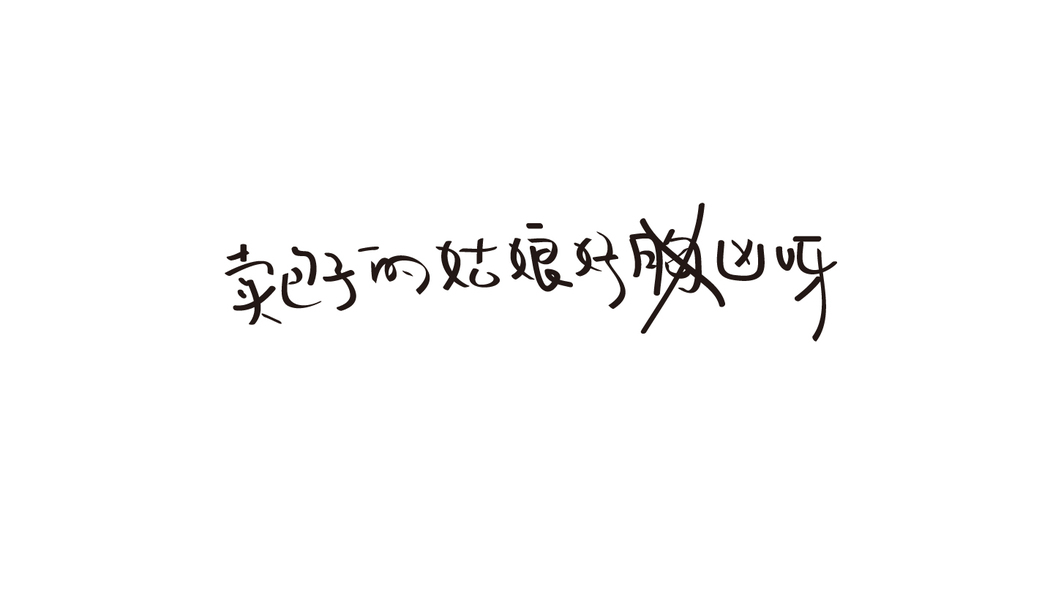 卖包子的姑娘好胸凶呀